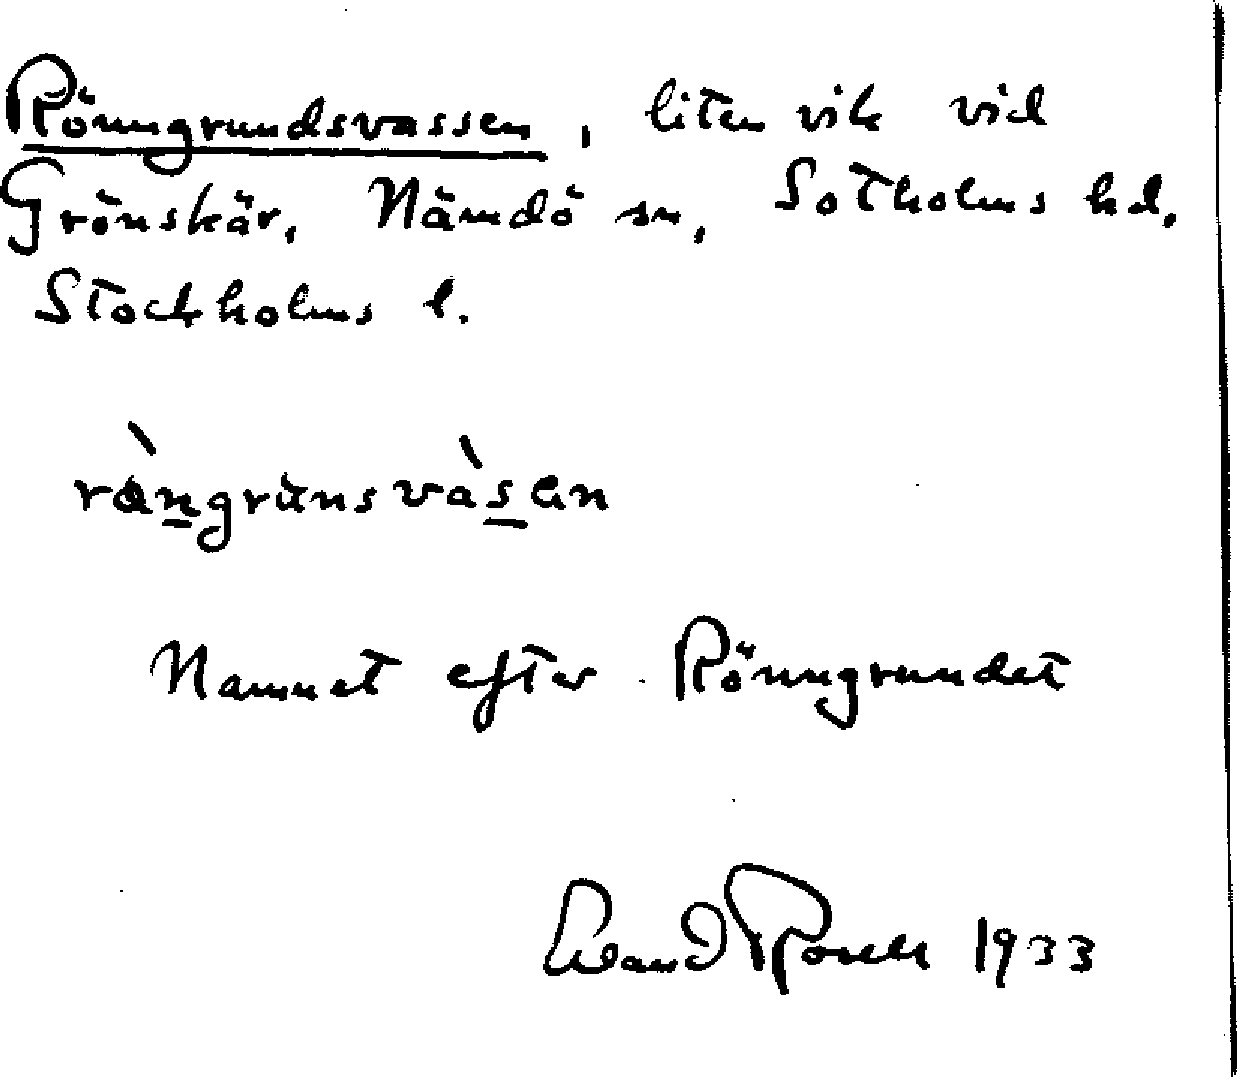 Rönngrundsvassen, liten vik vid
Grönskär, Nämdö sn, Sotholms hd.
Stockholms l.
ràngrùnsvàsen
Namnet efter Rönngrundet
1933